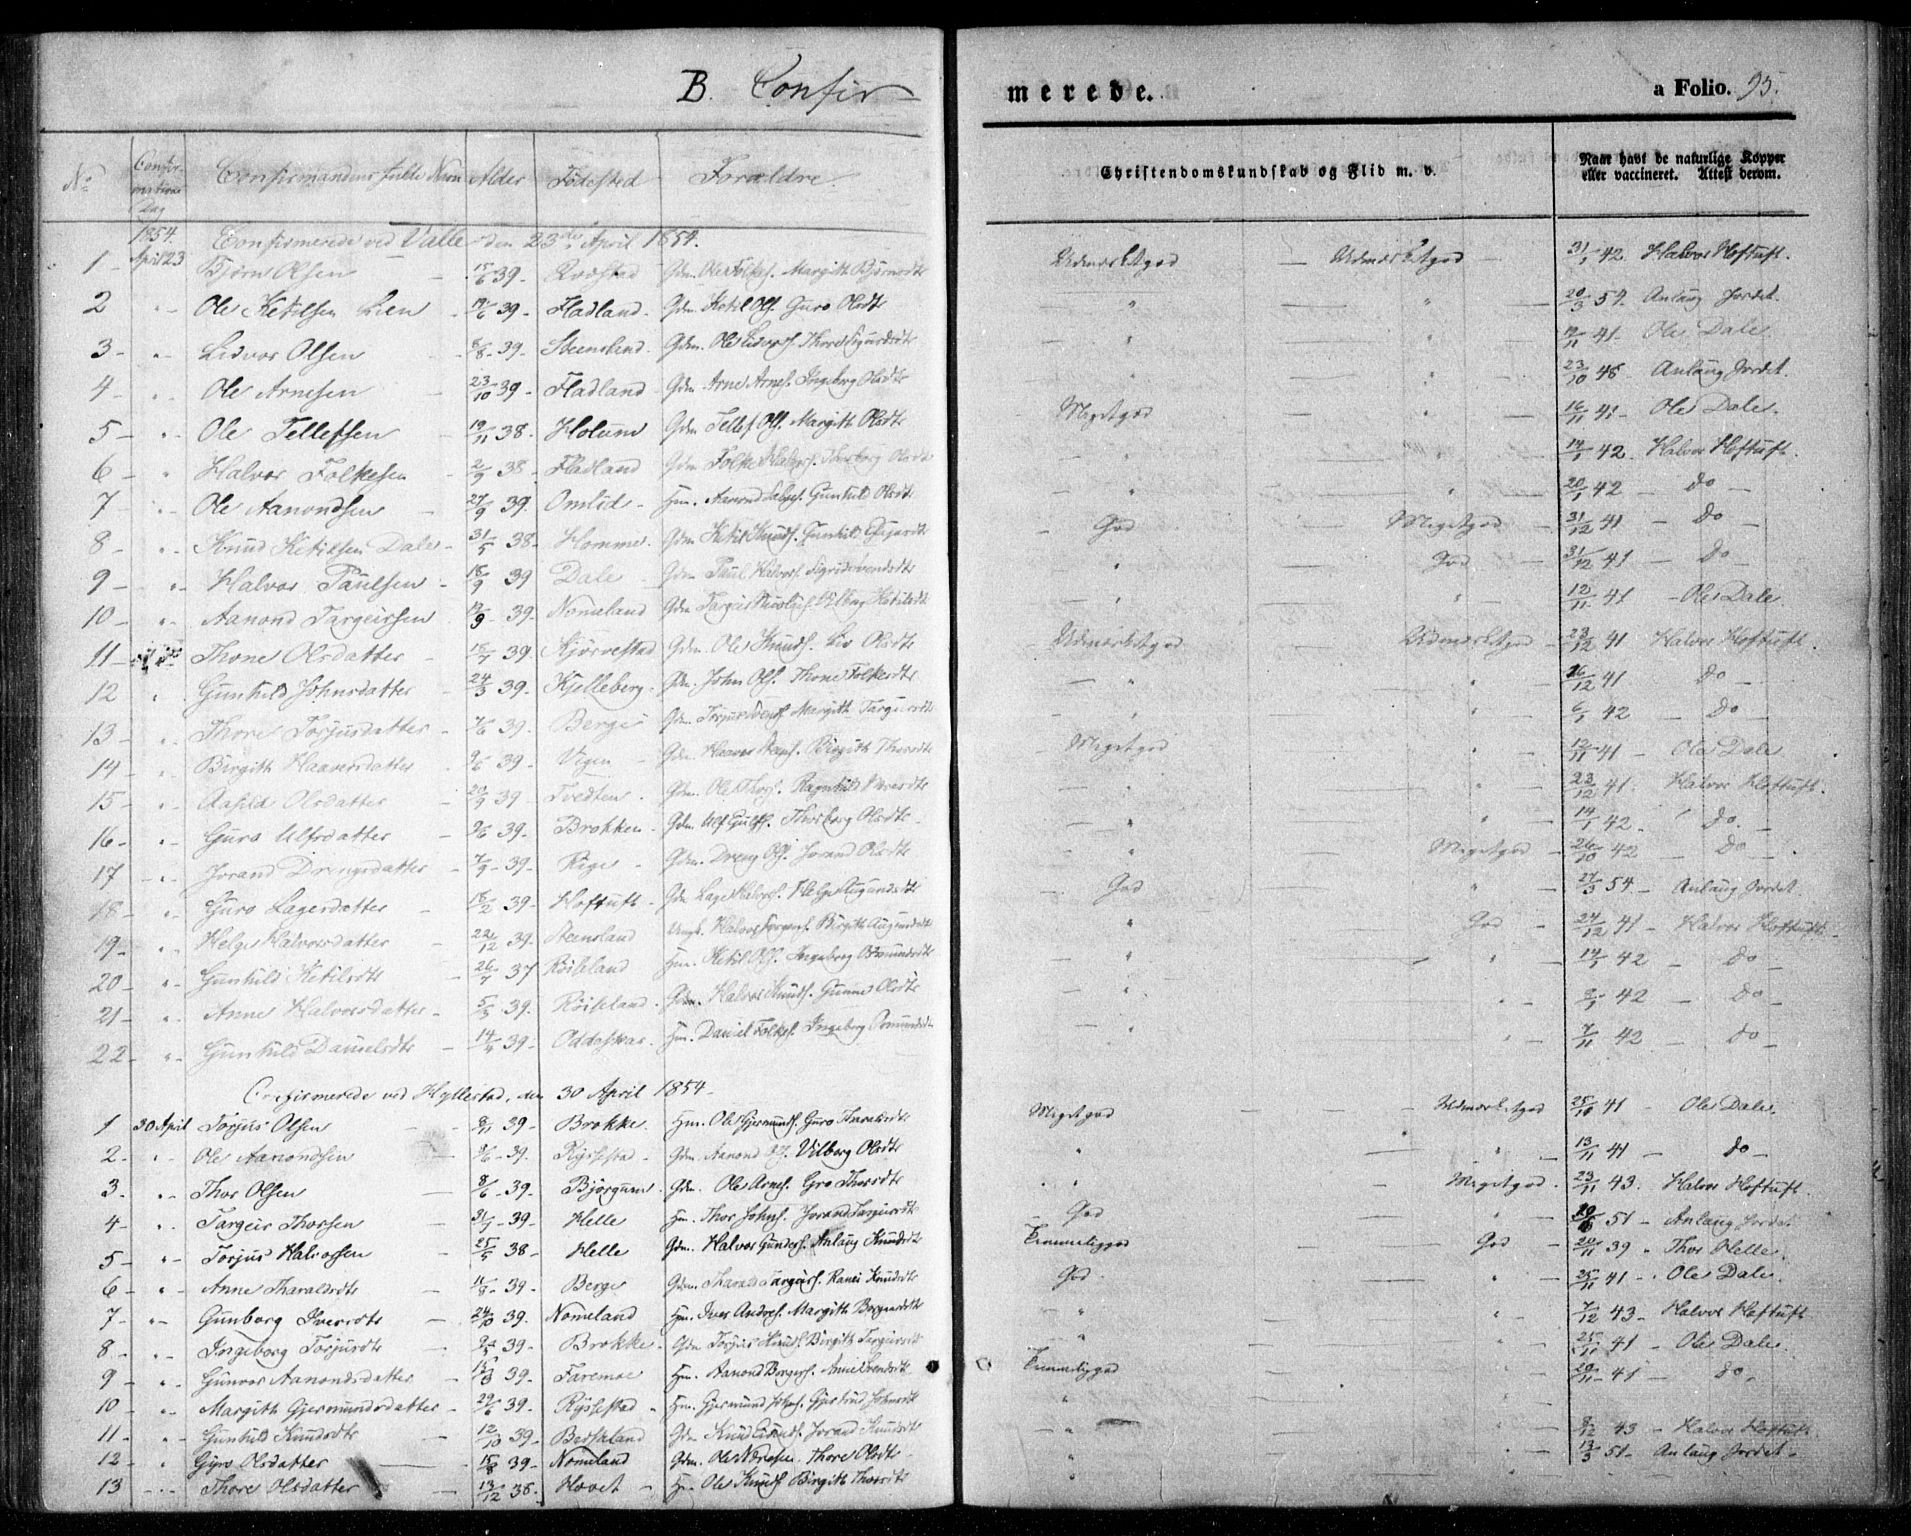 B. Confir
merede.
a Folio. 95.
No
Confirmations Dag
Confirmandens fulde Navn
Alder
Fødested
Forældre.
Christendomskundskab og Flid m. v.
Naar havt de naturlige Kopper eller vaccineret. Attest derom.
1854. Confirmerede ved Valle den 23de April 1854.
1 - April 23 Bjørn Olsen 15/6 39. Rødstad Gdm. Ole Folkes. Margith Bjørnsdtr Udmærketgod — Udmærketgod 31/1 42 Halvor Hoftuft.
2 - " - Ole Ketilsen Lien 19/6 39 - Fladland - Gdm. Ketil Ols. Guro Olsdtr " — " 20/3 54. Anlaug Jordet.
3 - " - Lidvor Olsen 8/8 - 39. Steensland. Gdm. Ole Lidvors. Thore Sigurdsdtr " — " 12/11 41 - Ole Dale.
4 - " - Ole Arnesen 23/10 39 - Fladland - Gdm. Arne Arnes. Ingeborg Olsdtr " — " 23/10 48 - Anlaug Jordet.
5 - " - Ole Tellefsen 19/11 38. Holum Gdm Tellef Ols. Margith Olsdtr Megetgod — " 16/11 41 - Ole Dale.
6 - " Halvor Folkesen 2/9 38 - Fladland Gdm Folke Halvors. Thorborg Olsdtr " — " 14/1 42 Halvor Hoftuft.
7 - " Ole Aanondsen 27/9 39. Omlid - Hm. Aanond Gunhild Olsdtr " — " 20/1 42 - do
8 - " - Knud Ketilsen Dale - 31/5 38 - Homme. Gdm Ketil Knuds. Gunhild God — Megetgod 31/12 41 - Do
9 - " Halvor Paulsen - 18/9 39 Dale Gdm Paul Halvors. Sigrid " — God 31/12 41 - Do
10 - " - Aanond Targeirsen 12/9 - 39. Nomeland Gdm Vilborg Ketilsdtr " — " 12/11 41 - Ole Dale.
11 - Thone Olsdatter 15/7 39. Kjørvestad Gdm. Ole Knuds. Liv Olsdtr Udmærketgod — Udmærketgod 23/12 41 Halvor Hoftuft.
12 " Gunhild Johnsdatter 24/3 39. Kjelleberg. Gdm. John Ols. Thone Folkesdtr " — " 16/12 41 Do
13 - " - Thore Torjusdatter - 7/6 39. Berge Gdm. Torjus Margith Targeirsdtr " — " 6/1 42 - Do
14 - " - Birgith Haavorsdatter 9/6 39. Vigen - Gdm Haavor Birgith Thorsdtr Megetgod — " 12/11 41 - Ole Dale
15 - " - Aasild Olsdatter 20/9 39. Tvedten. Gdm. Ole Ragnhild " — " 23/12 41. Halvor Hoftuft.
16 - " - Guro Ulfsdatter 9/6 39 - Brokken - Gdm. Ulf Thorborg Olsdtr - " — " 14/1 42. Do.
17 - " - Jorand Drengsdatter 7/9 - 39. Rige - Gdm. Dreng Ols. Jorand Olsdtr " — Megetgod 26/10 42 - Do
18 - " - Guro Lagesdatter 18/2 39 - Hoftuft - Gdm. Lage Helge Augundsdtr God — " 27/3 54 - Anlaug Jordet.
19 - " Helge Halvorsdatter 22/12 39. Steensland Halvor Birgith Augundsdtr " — God 24/12 41 - Halvor Hoftuft.
20 - " Gunhild Ketilsdtr 26/7 37 Røiseland Hm. Ketil Ols. Ingeborg Osmundsdtr " — " 14/1 42 - Do
21 - " - Anne Halvorsdatter - 5/5 39. Røiseland. Gdm. Halvor Knuds. Gunne Olsdtr " — " 8/1 42 - Do
22 - " - Gunhild Danielsdtr 14/4 39. Oddeskar. Hm. Daniel Folkes. Ingeborg Osmundsdtr " — " 7/11 42 - Do
Confirmerede ved Hyllestad, den 30 April 1854.
1 30 April Torjus Olsen 8/11 39 - Brokke. Hm. Ole Gjermunds. Guro Taraldsdtr Megetgod — Udmærketgod 25/10 41 - Ole Dale.
2 - " - Ole Aanondsen 9/6 - 39. Rysestad - Gdm. Aanond Ols. Vilborg Olsdtr " — " 13/11 41 do
3 - " - Thor Olsen 8/6 - 39. Bjørgum. Gdm. Ole Arnes. Gro Thorsdtr " — Megetgod. 23/11 43. Halvor Hoftuft.
4 - " - Targeir Thorsen 31/7 - 39 - Helle Hm. Thor Johns. Jorand Targeirsdtr God — " 51 - Anlaug Jordet
5 - " - Torjus Halvorsen 25/5 38 - Helle Gdm. Halvor Gunders. Anlaug Knudsdtr Temmeliggod — God 20/11 39 " Thor Helle.
6 - " - Anne Tharaldsdtr 11/8 - 39 - Berge Gdm. Tharald Targeirs. Ranei Knudsdtr God. — " 25/11 41 - Ole Dale.
7 - " - Gunborg Iversdtr 24/10 39. Nomeland Hm. Iver Andres. Margith Borgersdtr " — " 7/12 43 - Halvor Hoftuft
8 - " - Ingeborg Torjusdtr 39 - Brokke. Gdm Torjus Knuds. Birgith Targeirsdtr " — " 25/11 41 - Ole Dale.
9 - " - Gunvor Aanondsdatter 15/3 39. Faremoe Hm. Aanond Borgers. Temmeliggod 20/11 41 - do.
10 - " - Margith Gjermundsdatter - 29/6 39. Rysestad " Hm. Gjermund Johns. Gjertrud Johnsdtr "
11 - " - Gunhild Knudsdtr 12/10 39. Besteland Gdm Knud Jorand Knudsdtr " — " 8/12 43 - Halvor Hoftuft
12 - " Gyro Olsdatter 15/8 39 - Nomeland Gdm. Ole Thore Olsdtr " — " 13/3 51 - Anlaug Jordet -
13 " - Thore Olsdatter 13/12 38. Hovet - Hm Ole Knuds. Birgith Thorsdtr "